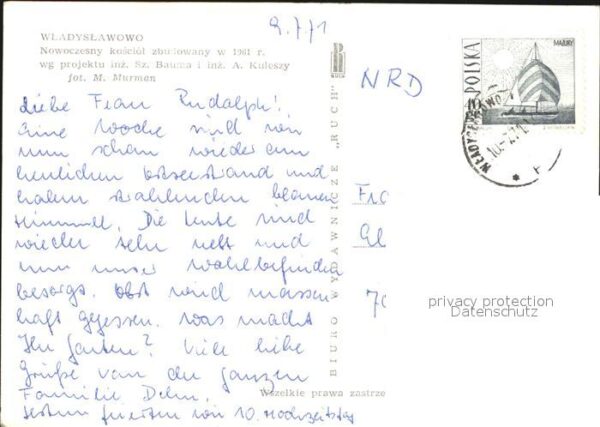 9.7.71
WŁADYSŁAWOWO
Nowoczesny kościół zbudowany w 1961 r.
wg projektu inż. Sz. Bauma i inż. A. Kuleszy
fot. M. Murman
Liebe Frau Rudolph!
Eine Woche sind wir
nun schon wieder am
herrlichen Ostseestrand und
haben strahlenden blauen
Himmel. Die Leute sind
wieder sehr nett und
um unser Wohlbefinden
besorgt. Obst wird massen
haft gegessen. Was macht
Ihr Garten? Viele liebe
Grüße von der ganzen
Familie
Gestern feierten wir 10. Hochzeitstag
BIURO WYDAWNICZE "RUCH"
RUCH
Wszelkie prawa zastrze
NRD
Gl
POLSKA
MAZURY
WŁADYSŁAWOWO
privacy protection
Datenschutz